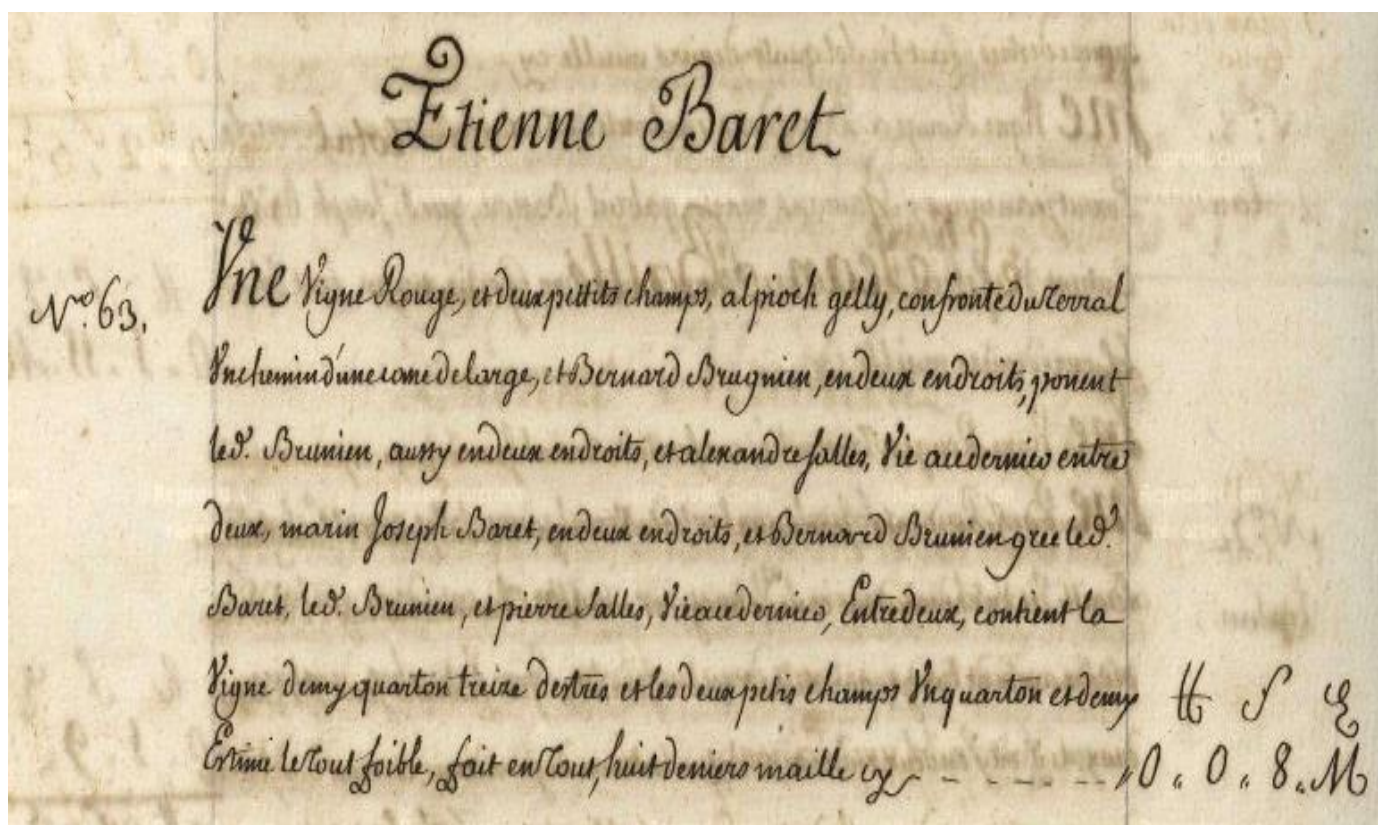 Etienne Baret
N.º 63.
Vne Vigne Rouge, et deux pettits champs, al pioch gelly, confronte du Terral
Vn chemin d'une cane de large, et Bernard Brugnien, en deux endroits, ponent
led. Brunien, aussy en deux endroits, et alexandre salles, Vie aud dernier entre
deux, marin Joseph Baret, en deux endroits, et Bernard Brunien grec led.
Baret, led. Brunien, et pierre salles, Vie aud dernier, Entredeux, contient la
Vigne demy quarton treize destres et les deux petis champs Vn quarton et demy
Estimé le tout foible, fait en tout, huit deniers maille cy - - - - - -
₶ s ₰
0. 0. 8. M